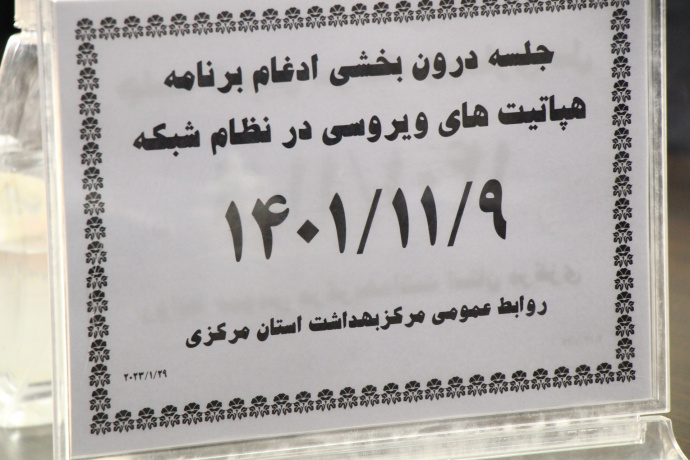 جلسه درون بخشی ادغام برنامه
هپاتیت های ویروسی در نظام شبکه
۱۴۰۱/۱۱/۹
روابط عمومی مرکزبهداشت استان مرکزی
۲۰۲۳/۱/۲۹